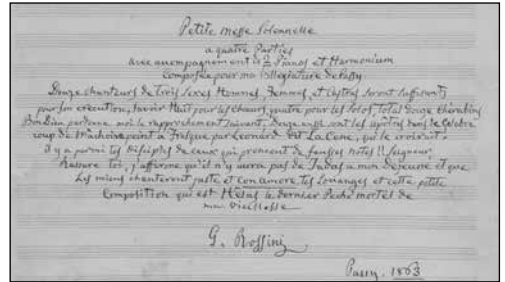 Petite messe Solennelle
a quatre Parties
avec accompagnement de 2 Pianos et Harmonium
Composée pour ma villégiature de Passy
Douze chanteurs de trois Sexes Hommes, Femmes et Castres seront suffisants
pour son execution, savoir Huit pour les Chœurs, quatre pour les Solos, total Douze Chérubins
Bon Dieu pardonne moi le rapprochement suivant, Douze aussi sont les Apôtres dans le Célebre
coup de Machoire peint a Fresque par Léonard dit La Cène, qui le croirait.
il y a parmi tes Disciples de ceux qui prennent de fausses notes !! Seigneur
Rassure toi, j'affirme qu'il n'y aura pas de Judas a mon dejeuné et que
Les miens chanteront juste et con amore tes Louanges et cette petite
Composition qui est Hélas le dernier Péché mortel de
ma vieillesse
G. Rossini
Passy. 1863